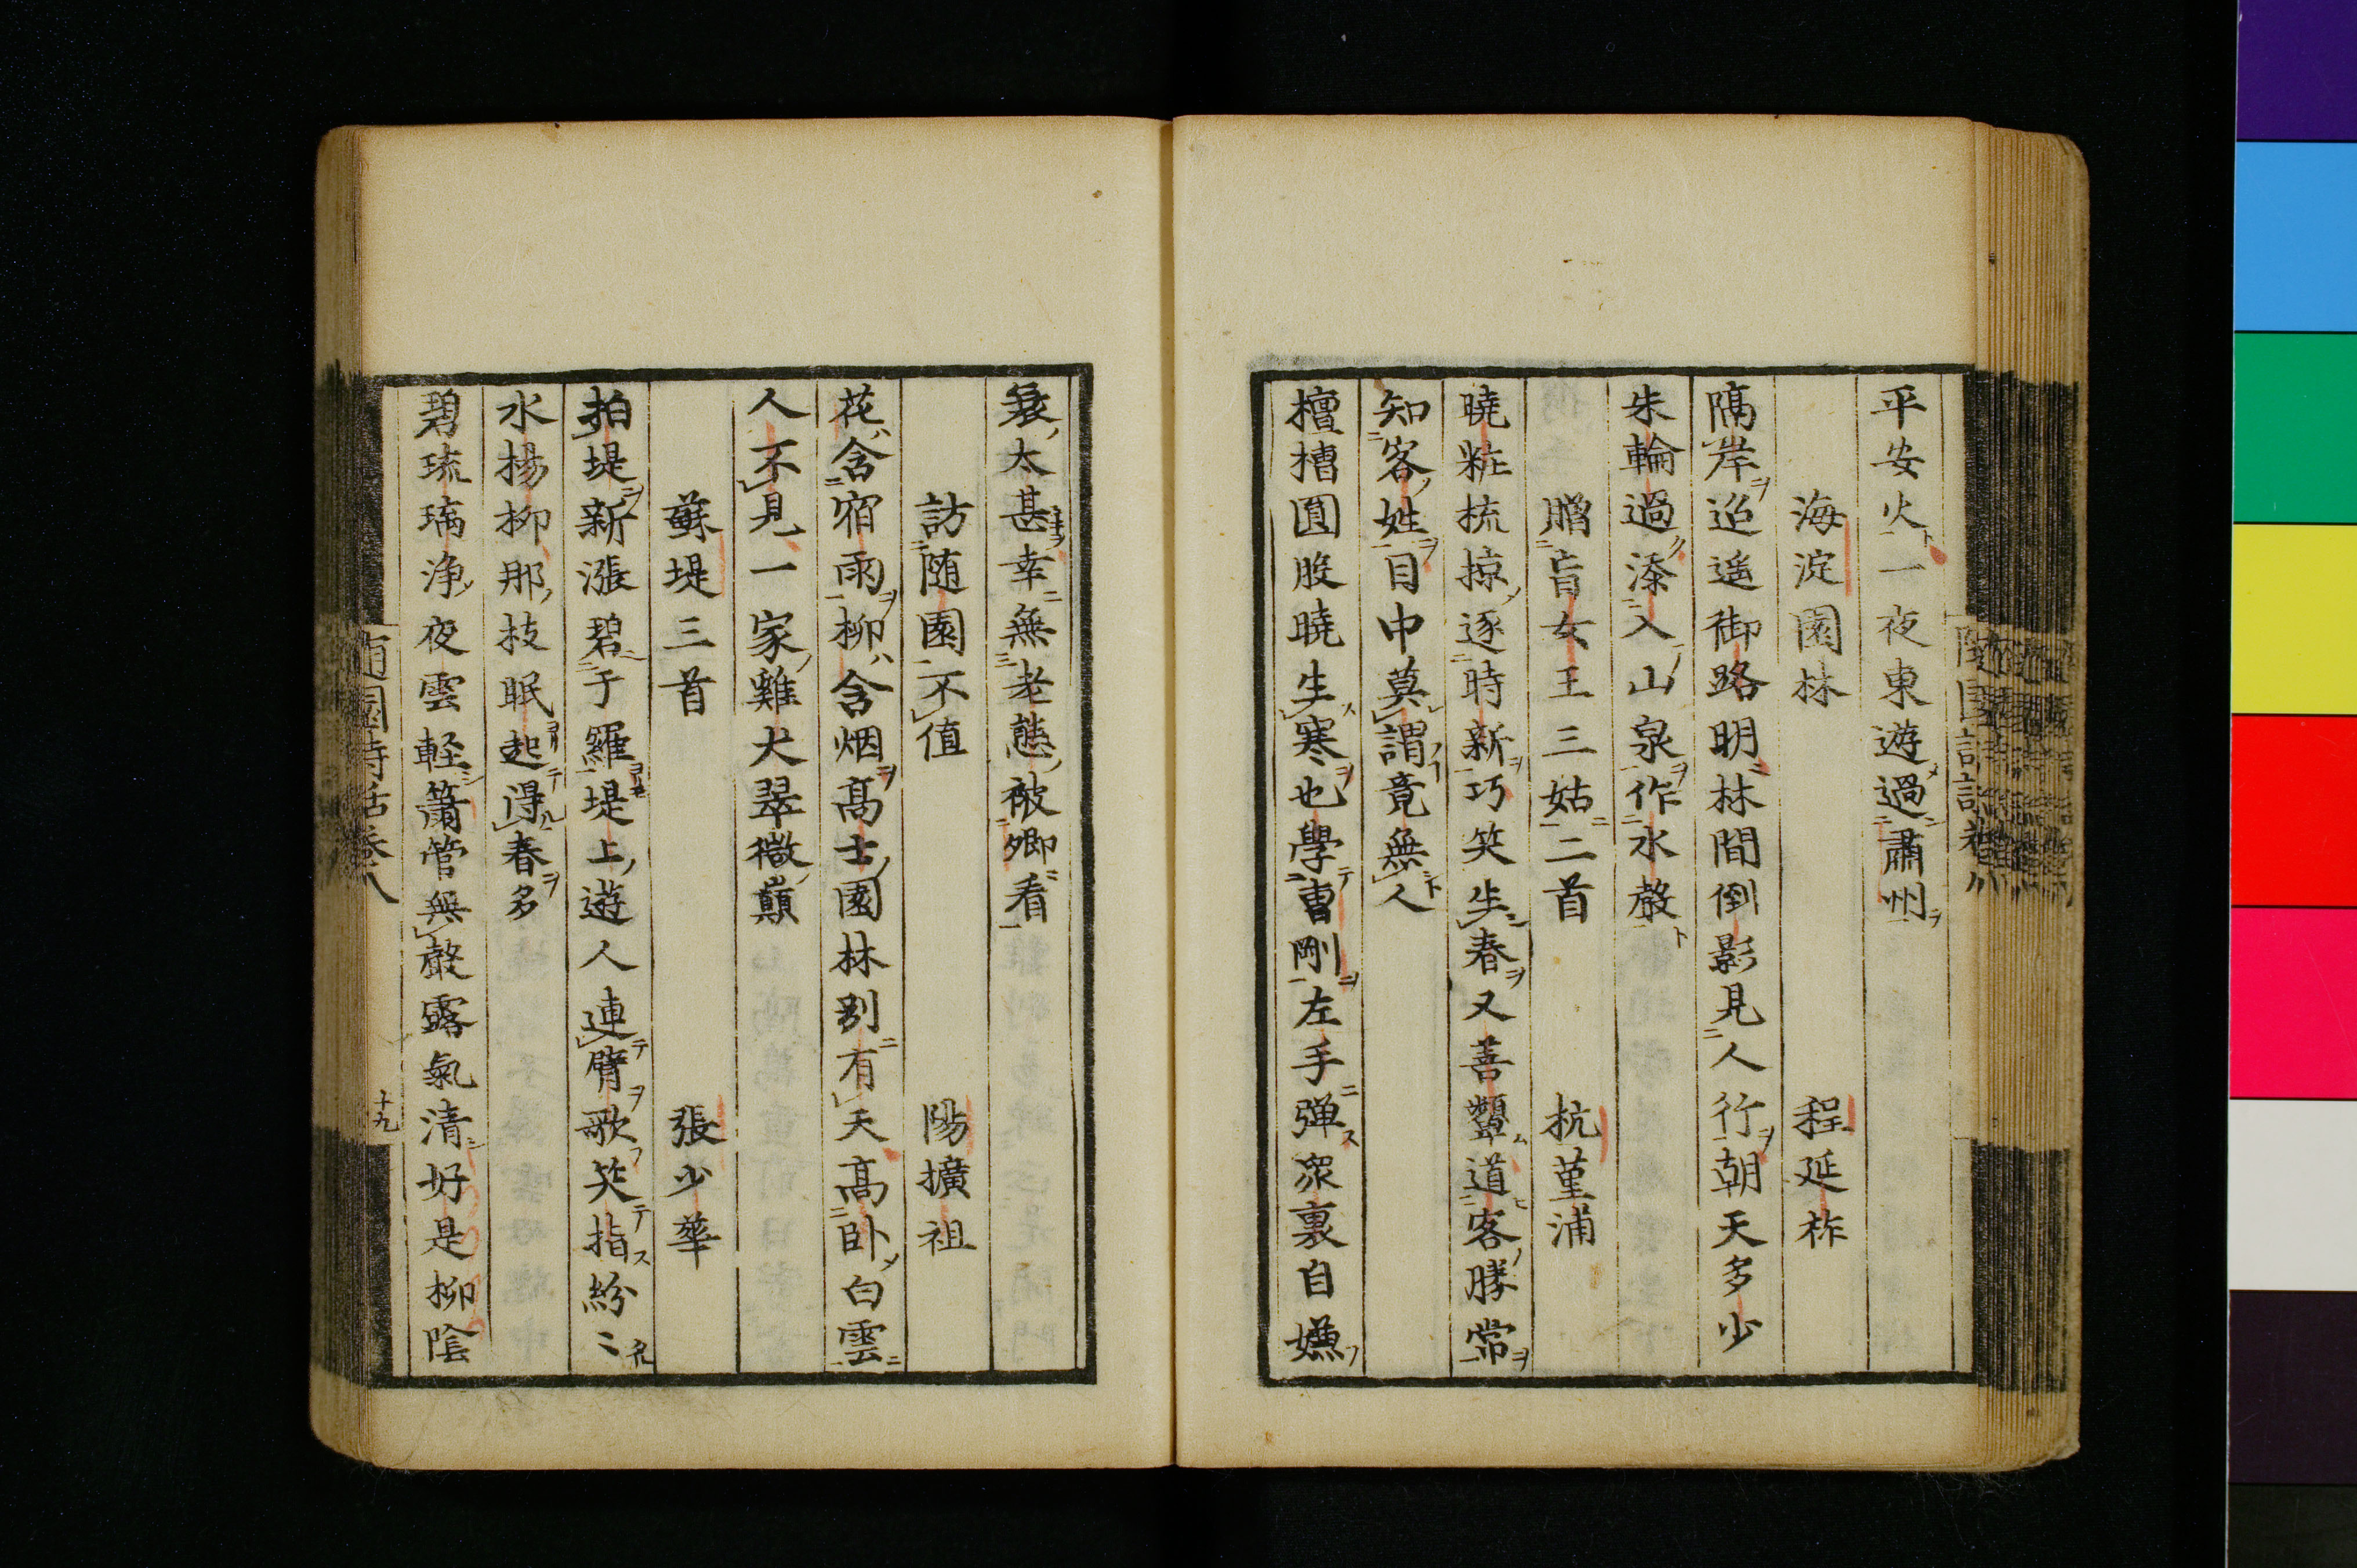 平安火一夜東遊過肅州
海淀園林 程延祚
隔岸迢遥御路明林間倒影見人行朝天多少
朱輪過溙入山泉作水聲
贈盲女王三姑二首 杭菫浦
曉粧梳掠逐時新巧笑生春又善顰道客勝常
知客姓目中莫謂竟無人
檀槽圓股曉生寒也學曹剛左手弾衆裏自嫌
衰太甚幸無老態被卿看
訪随園不值 陽擴祖
花含宿雨柳含烟髙士園林别有天髙卧白雲
人不見一家雞犬翠微巔
蘇堤三首 張少華
拍堤新漲碧于羅堤上遊人連臂歌笑指紛〻
水揚柳那枝眠起得春多
碧琉璃浄夜雲軽簫管無聲露氣清好是柳陰
随園詩話卷八
十九